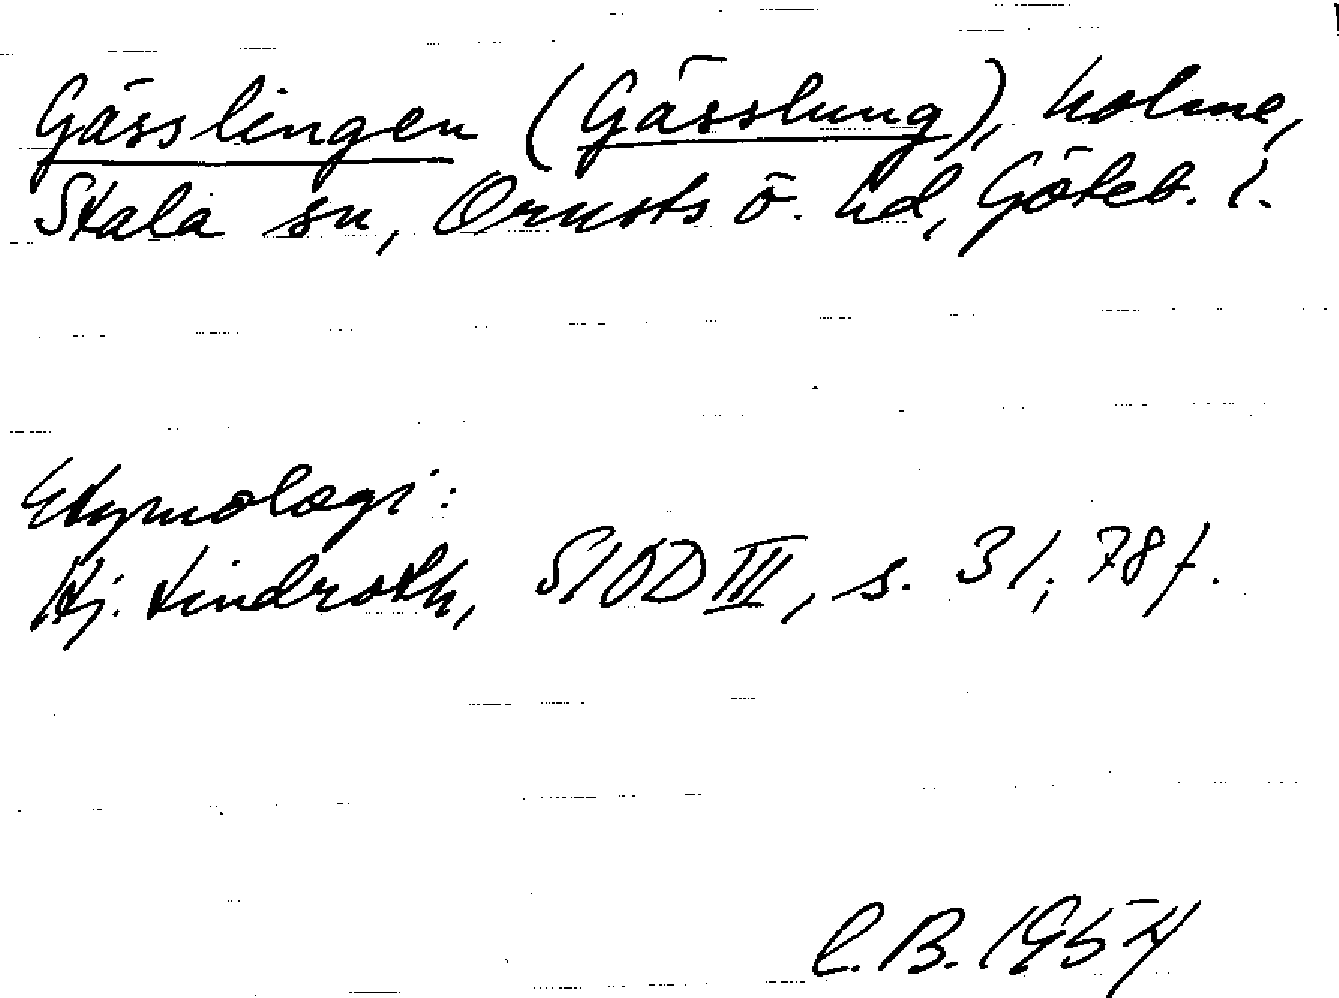 Gässlingen (Gässlung), holme,
Stala sn, Orusts ö. hd, Göteb. l.
Etymologi:
Hj. Lindroth, SIOD III, s. 31, 78 f.
C.B. 1954